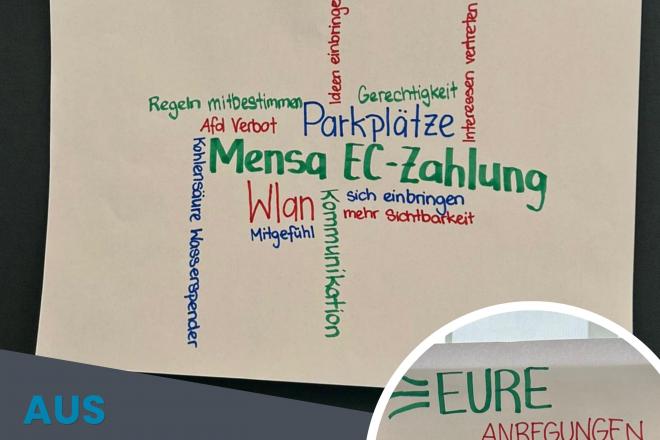 Ideen einbringen
Interessen vertreten
Regeln mitbestimmen
Gerechtigkeit
Afd Verbot
Parkplätze
Mensa EC-Zahlung
Kohlensäure Wasserspender
Wlan
Kommunikation
sich einbringen
mehr Sichtbarkeit
Mitgefühl
AUS
EURE
ANREGUNGEN